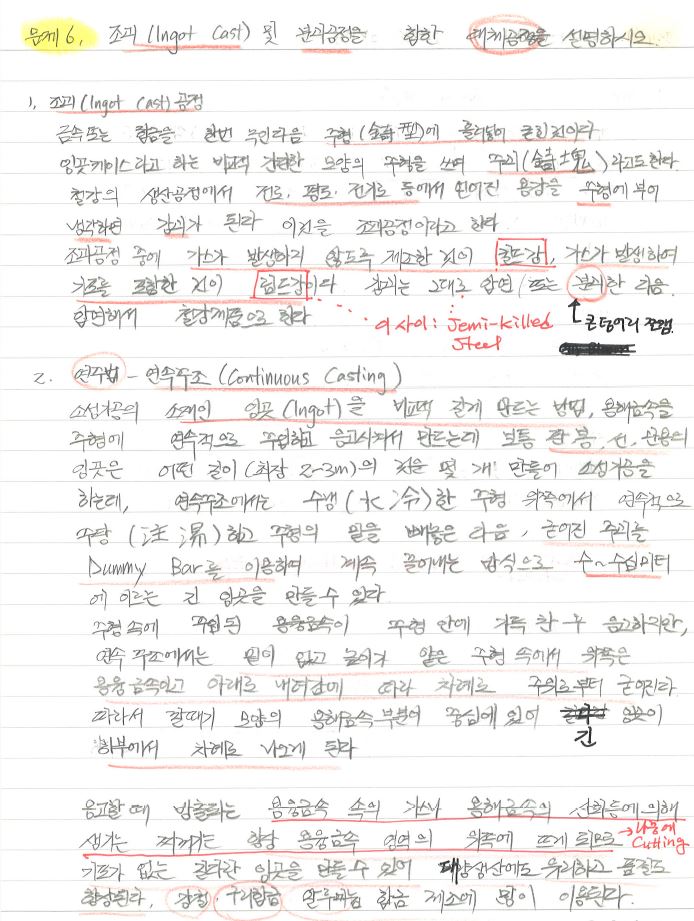 문제 6. 조괴(Ingot Cast) 및 분괴공정을 합한 대체공정을 설명하시오.
1. 조괴(Ingot Cast) 공정
금속 또는 합금을 한번 녹인다음 주형(鑄型)에 흘러넣어 굳힌것이다
잉곳케이스라고 하는 비교적 간단한 모양의 주형을 쓰며 주괴(鑄塊)라고도 한다.
철강의 생산공정에서 전로, 평로, 전기로 등에서 얻어진 용강을 주형에 부어
냉각하면 강괴가 된다 이것을 조괴공정이라고 한다
조괴공정 중에 가스가 발생하지 않도록 제조한 것이 킬드강, 가스가 발생하여
기포를 포함한 것이 림드강이다 강괴는 그대로 압연(또는 분괴)한 다음
압연해서 철강제품으로 한다
이 사이: Semi-killed Steel
큰 덩어리 쪼갬.
2. 연주법 - 연속주조(Continuous Casting)
소성가공의 소재인 잉곳(Ingot)을 비교적 길게 만드는 방법, 용해금속을
주형에 연속적으로 주입하고 응고시켜서 만드는데 보통 판, 봉, 선, 단용의
잉곳은 어떤 길이(최장 2~3m)의 것을 몇 개 만들어 소성가공을
하는데, 연속주조에서는 수냉(水冷)한 주형 위쪽에서 연속적으로
주탕(注湯)하고 주형의 밑을 빼놓은 다음, 굳어진 주괴를
Dummy Bar를 이용하여 계속 끌어내는 방식으로 수~수십미터
에 이르는 긴 잉곳을 만들 수 있다
주형 속에 주입된 용융금속이 주형 안에 가득 찬 후 응고하지만,
연속 주조에서는 밑이 없고 높이가 얕은 주형 속에서 위쪽은
용융금속이고 아래로 내려감에 따라 차례로 주위로부터 굳어진다.
따라서 깔때기 모양의 용해금속 부분이 중심에 있어 긴 잉곳이
하부에서 차례로 나오게 된다
응고할 때 방출되는 용융금속 속의 가스나 용해금속의 산화등에 의해
생기는 찌꺼기는 항상 용융금속 영역의 위쪽에 뜨게 되므로 → 나중에 Cutting
기포가 없는 길다란 잉곳을 만들 수 있어 대량생산에도 유리하고 품질도
향상된다. 강철, 구리합금, 알루미늄 합금 제조에 많이 이용된다.